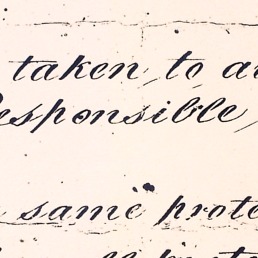 taken, to
Responsible,
same prote